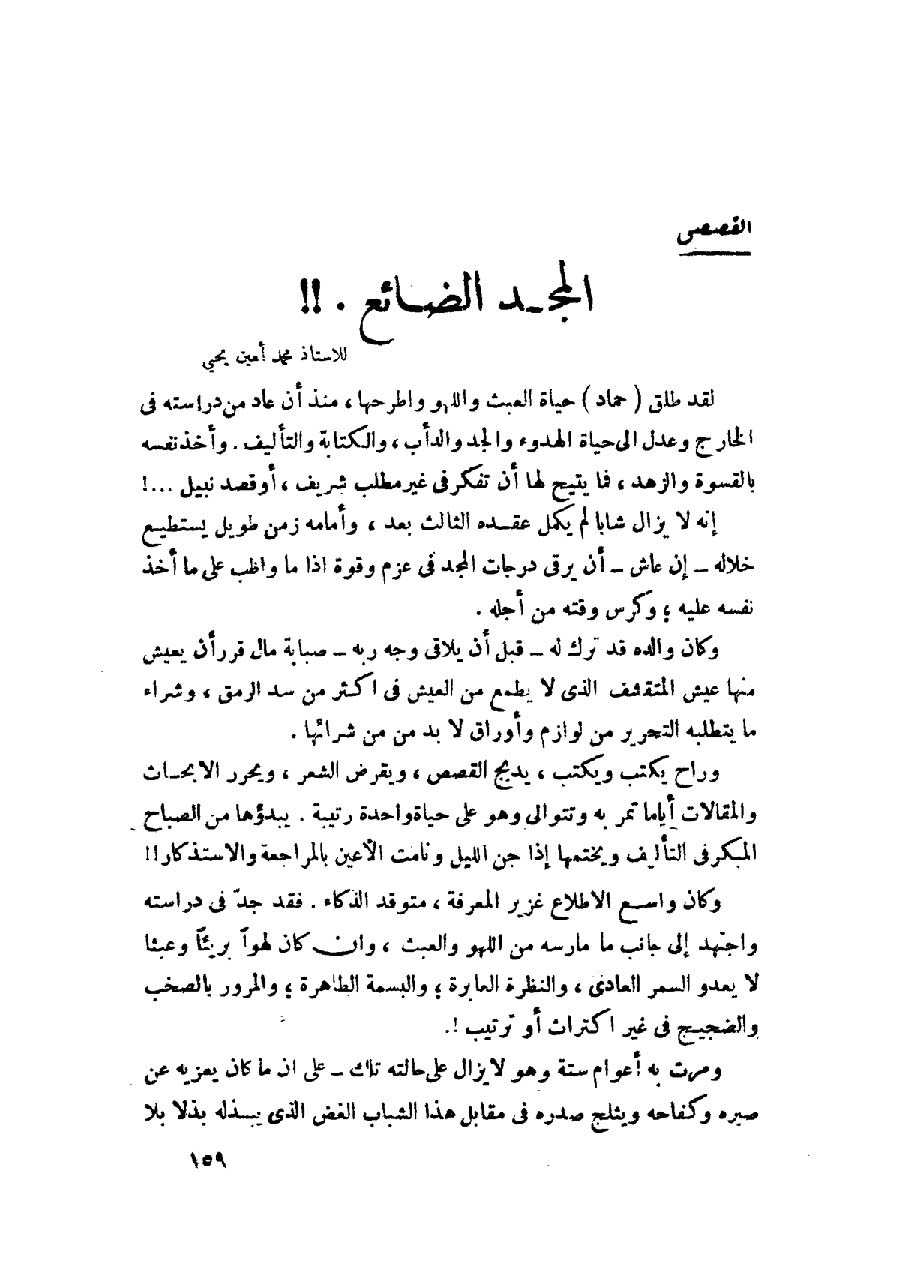 القصصى
المجـد الضـائع . !!
للاستاذ محمد أمين يحيى
لقد طلق ( حماد ) حياة العبث واللهو واطرحها ، منذ أن عاد من دراسته فى
الخارج وعدل الى حياة الهدوء والجد والدأب ، والكتابة والتأليف . وأخذ نفسه
بالقسوة والزهد ، فما يتيح لها أن تفكر فى غير مطلب شريف ، أو قصد نبيل ...!
إنه لا يزال شابا لم يكمل عقـده الثالث بعد ، وأمامه زمن طويل يستطيـع
خلاله – إن عاش – أن يرقى درجات المجد فى عزم وقوة اذا ما واظب على ما أخذ
نفسه عليه ؛ وكرس وقته من أجله .
وكان والده قد ترك له – قبل أن يلاقى وجه ربه – صبابة مال قرر أن يعيش
منها عيش المتقشف الذى لا يطمع من العيش فى اكـثر من سد الرمق ، وشراء
ما يتطلبه التحرير من لوازم وأوراق لا بد من من شرائها .
وراح يكتب ويكتب ، يدبج القصص ، ويقرض الشعر ، ويحرر الابحـاث
والمقالات أياما تمر به وتتوالى وهو على حياة واحدة رتيبة . يبدؤها من الصباح
المبكر فى التأليف ويختمها إذا جن الليل ونامت الأعين بالمراجعة والاستذكار !!
وكان واسـع الاطلاع غزير المعرفة ، متوقد الذكاء . فقد جدّ فى دراسته
واجتهد إلى جانب ما مارسه من اللهو والعبث ، وان كان لهواً بريئاً وعبثا
لا يعدو السمر العادى ، والنظرة العابرة ؛ والبسمة الطاهرة ؛ والمرور بالصخب
والضجيج فى غير اكتراث أو ترتيب !.
ومرت به أعوام ستة وهو لا يزال على حالته تلك – على ان ما كان يعزيه عن
صبره وكفاحه ويثلج صدره فى مقابل هذا الشباب الغض الذى يبـذله بذلا بلا
١٥٩